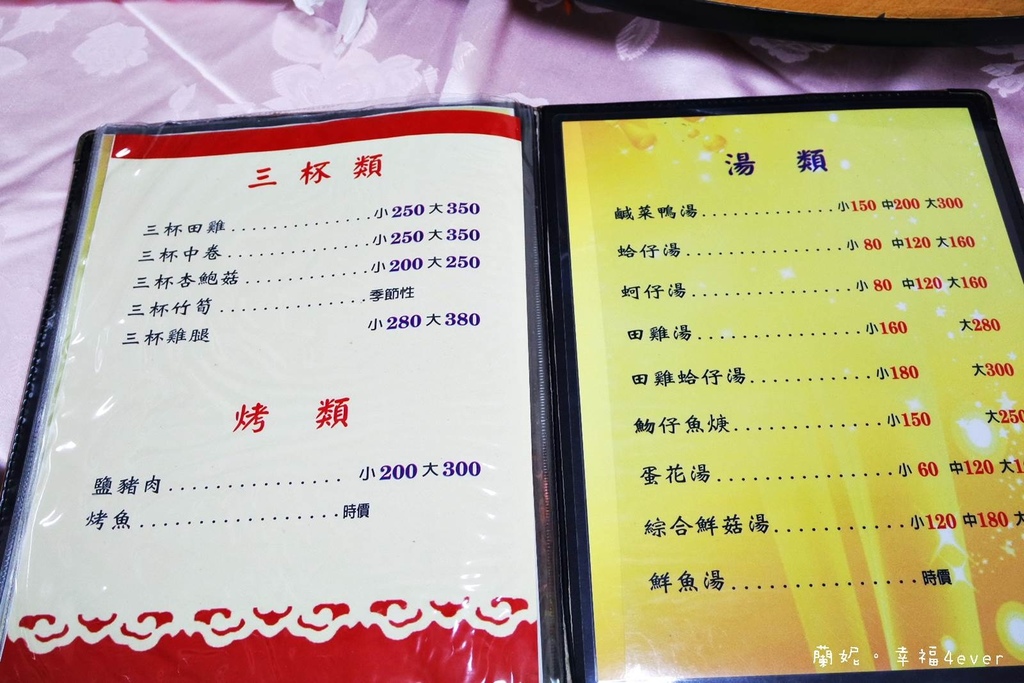 三杯類
三杯田雞..............小250 大350
三杯中卷..............小250 大350
三杯杏鮑菇............小200 大250
三杯竹筍..............季節性
三杯雞腿 小280 大380
烤類
鹽豬肉................小200 大300
烤魚..................時價
湯類
鹹菜鴨湯............小150 中200 大300
蛤仔湯..............小 80 中120 大160
蚵仔湯..............小 80 中120 大160
田雞湯..............小160 大280
田雞蛤仔湯..........小180 大300
魩仔魚焿............小150 大250
蛋花湯..............小 60 中120
綜合鮮菇湯..........小120 中180
鮮魚湯..............時價
蘭妮。幸福4ever